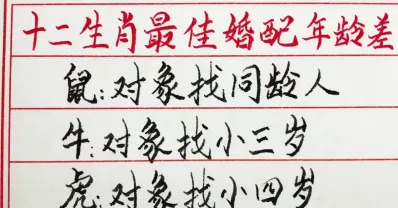 十二生肖最佳婚配年龄差
鼠:对象找同龄人
牛:对象找小三岁
虎:对象找小四岁